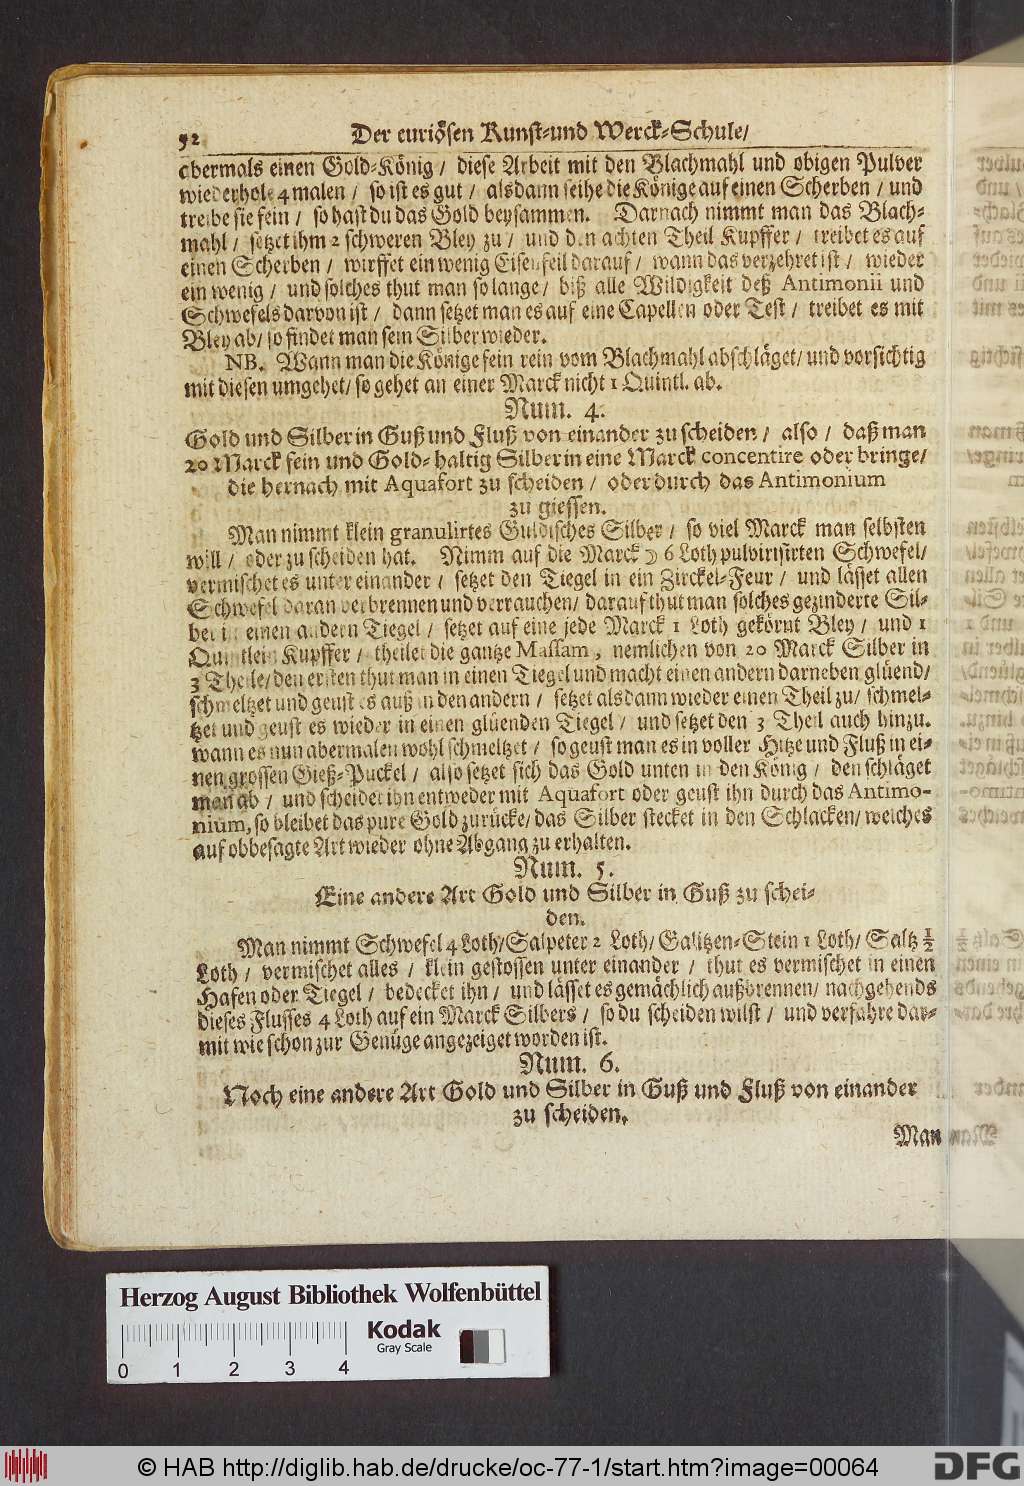 52 Der curiösen Kunst-und Werck-Schule/
abermals einen Gold-König / diese Arbeit mit den Blachmahl und obigen Pulver
wiederhole 4 malen / so ist es gut / alsdann seihe die Könige auf einen Scherben / und
treibe sie fein / so hast du das Gold beysammen. Darnach nimmt man das Blach-
mahl / setzet ihm 2 schweren Bley zu / und den achten Theil Kupffer / treibet es auf
einen Scherben / wirffet ein wenig Eisenfeil darauf / wann das verzehret ist / wieder
ein wenig / und solches thut man so lange / biß alle Wildigkeit deß Antimonii und
Schwefels darvon ist / dann setzet man es auf eine Capellen oder Test / treibet es mit
Bley ab/ so findet man sein Silber wieder.
NB. Wann man die Könige fein rein vom Blachmahl abschläget/ und vorsichtig
mit diesen umgehet/ so gehet an einer Marck nicht 1 Quintl. ab.
Num. 4.
Gold und Silber in Guß und Fluß von einander zu scheiden / also / daß man
20 Marck fein und Gold-haltig Silber in eine Marck concentire oder bringe/
die hernach mit Aquafort zu scheiden / oder durch das Antimonium
zu giessen.
Man nimmt klein granulirtes Guldisches Silber / so viel Marck man selbsten
will / oder zu scheiden hat. Nimm auf die Marck ☽ 6 Loth pulvirisirten Schwefel/
vermischet es unter einander / setzet den Tiegel in ein Zirckel-Feur / und lässet allen
Schwefel daran verbrennen und verrauchen/ darauf thut man solches gezinderte Sil-
ber in einen andern Tiegel / setzet auf eine jede Marck 1 Loth gekörnt Bley / und 1
Quintlein Kupffer / theilet die gantze Massam, nemlichen von 20 Marck Silber in
3 Theile/ den ersten thut man in einen Tiegel und macht einen andern darneben glüend/
schmeltzet und geust es auß in den andern / setzet alsdann wieder einen Theil zu/ schmel-
tzet und geust es wieder in einen glüenden Tiegel / und setzet den 3 Theil auch hinzu.
wann es nun abermalen wohl schmeltzet / so geust man es in voller Hitze und Fluß in ei-
nen grossen Gieß-Puckel / also setzet sich das Gold unten in den König / den schläget
man ab / und scheidet ihn entweder mit Aquafort oder geust ihn durch das Antimo-
nium, so bleibet das pure Gold zurücke/ das Silber stecket in den Schlacken/ welches
auf obbesagte Art wieder ohne Abgang zu erhalten.
Num. 5.
Eine andere Art Gold und Silber in Guß zu schei-
den.
Man nimmt Schwefel 4 Loth/ Salpeter 2 Loth/ Galitzen-Stein 1 Loth/ Saltz ½
Loth / vermischet alles / klein gestossen unter einander / thut es vermischet in einen
Hafen oder Tiegel / bedecket ihn / und lässet es gemächlich außbrennen/ nachgehends
dieses Flusses 4 Loth auf ein Marck Silbers / so du scheiden wilst / und verfahre dar-
mit wie schon zur Genüge angezeiget worden ist.
Num. 6.
Noch eine andere Art Gold und Silber in Guß und Fluß von einander
zu scheiden.
Man
Herzog August Bibliothek Wolfenbüttel
Kodak
Gray Scale
0 1 2 3 4
© HAB http://diglib.hab.de/drucke/oc-77-1/start.htm?image=00064
DFG